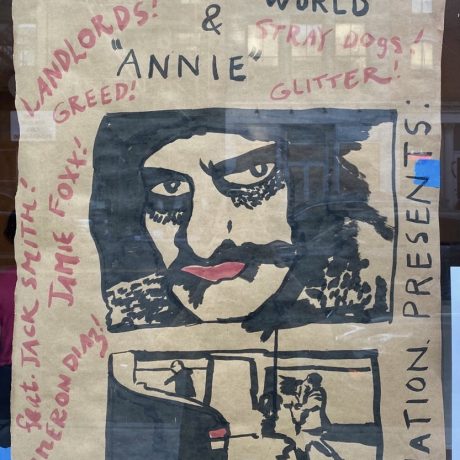 WORLD
&
"ANNIE"
LANDLORDS!
GREED!
STRAY DOGS!
GLITTER!
feat. JACK SMITH!
JAMIE FOXX!
MERON DIAZ!
ATION PRESENTS: